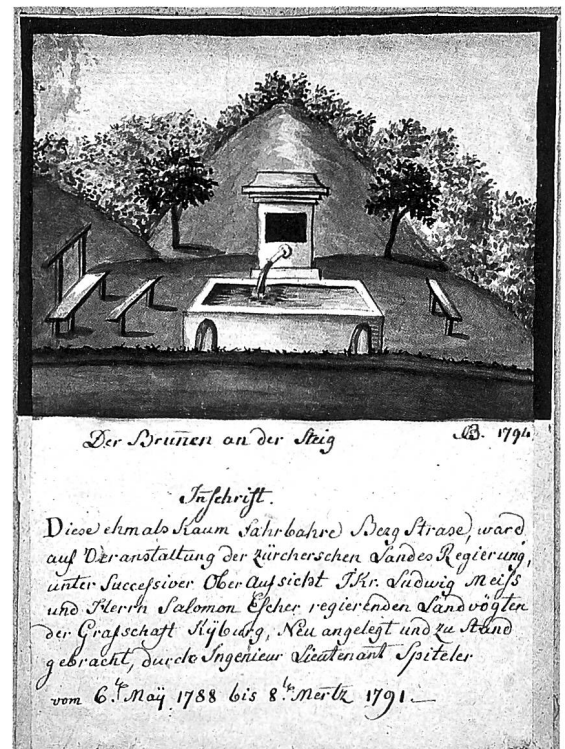 Der Brun̄en an der Steig B. 1794
Inschrift.
Diese ehmals kaum fahrbahre Berg Strase, ward
auf Veranstaltung der zürcherschen Landes Regierung,
unter Successiver Ober Aufsicht Jkr. Ludwig Meiss
und Herrn Salomon Escher regierenden Landvögten
der Grafschaft Kÿburg, Neu angelegt und zu Stand
gebracht, durch Ingenieur Lieutenant Spiteler
vom 6.t Maÿ 1788 bis 8.ts Mertz 1791.